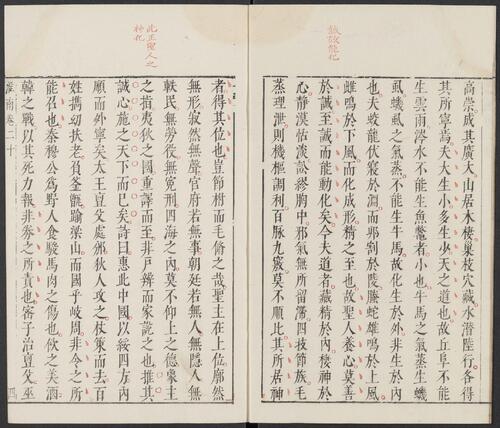 誠故能化
高崇成其廣大山居木棲巢枝穴藏水潛陸行各得
其所寧焉夫大生小多生少天之道也故丘阜不能
生雲雨滎水不能生魚鱉者小也牛馬之氣蒸生蟣
虱蟣虱之氣蒸不能生牛馬故化生於外非生於內
也夫蛟龍伏寢於淵而卵剖於陵螣蛇雄鳴於上風
雌鳴於下風而化成形精之至也故聖人養心莫善
於誠至誠而能動化矣今夫道者藏精於內棲神於
心靜漠恬淡訟繆胸中邪氣無所留滯四枝節族毛
蒸理泄則機樞調利百脈九竅莫不順比其所居神
此正聖人之
神化
者得其位也豈節拊而毛修之哉聖主在上位廓然
無形寂然無聲官府若無事朝廷若無人無隱人無
軼民無勞役無冤刑四海之內莫不仰上之德象主
之指夷狄之國重譯而至非戶辨而家說之也推其
誠心施之天下而已矣詩曰惠此中國以綏四方內
順而外寧矣太王亶父處邠狄人攻之杖策而去百
姓攜幼扶老負釜甑踰梁山而國乎岐周非令之所
能召也秦穆公為野人食駿馬肉之傷也飲之美酒
韓之戰以其死力報非券之所責也宓子治亶父巫
淮南卷二十 四